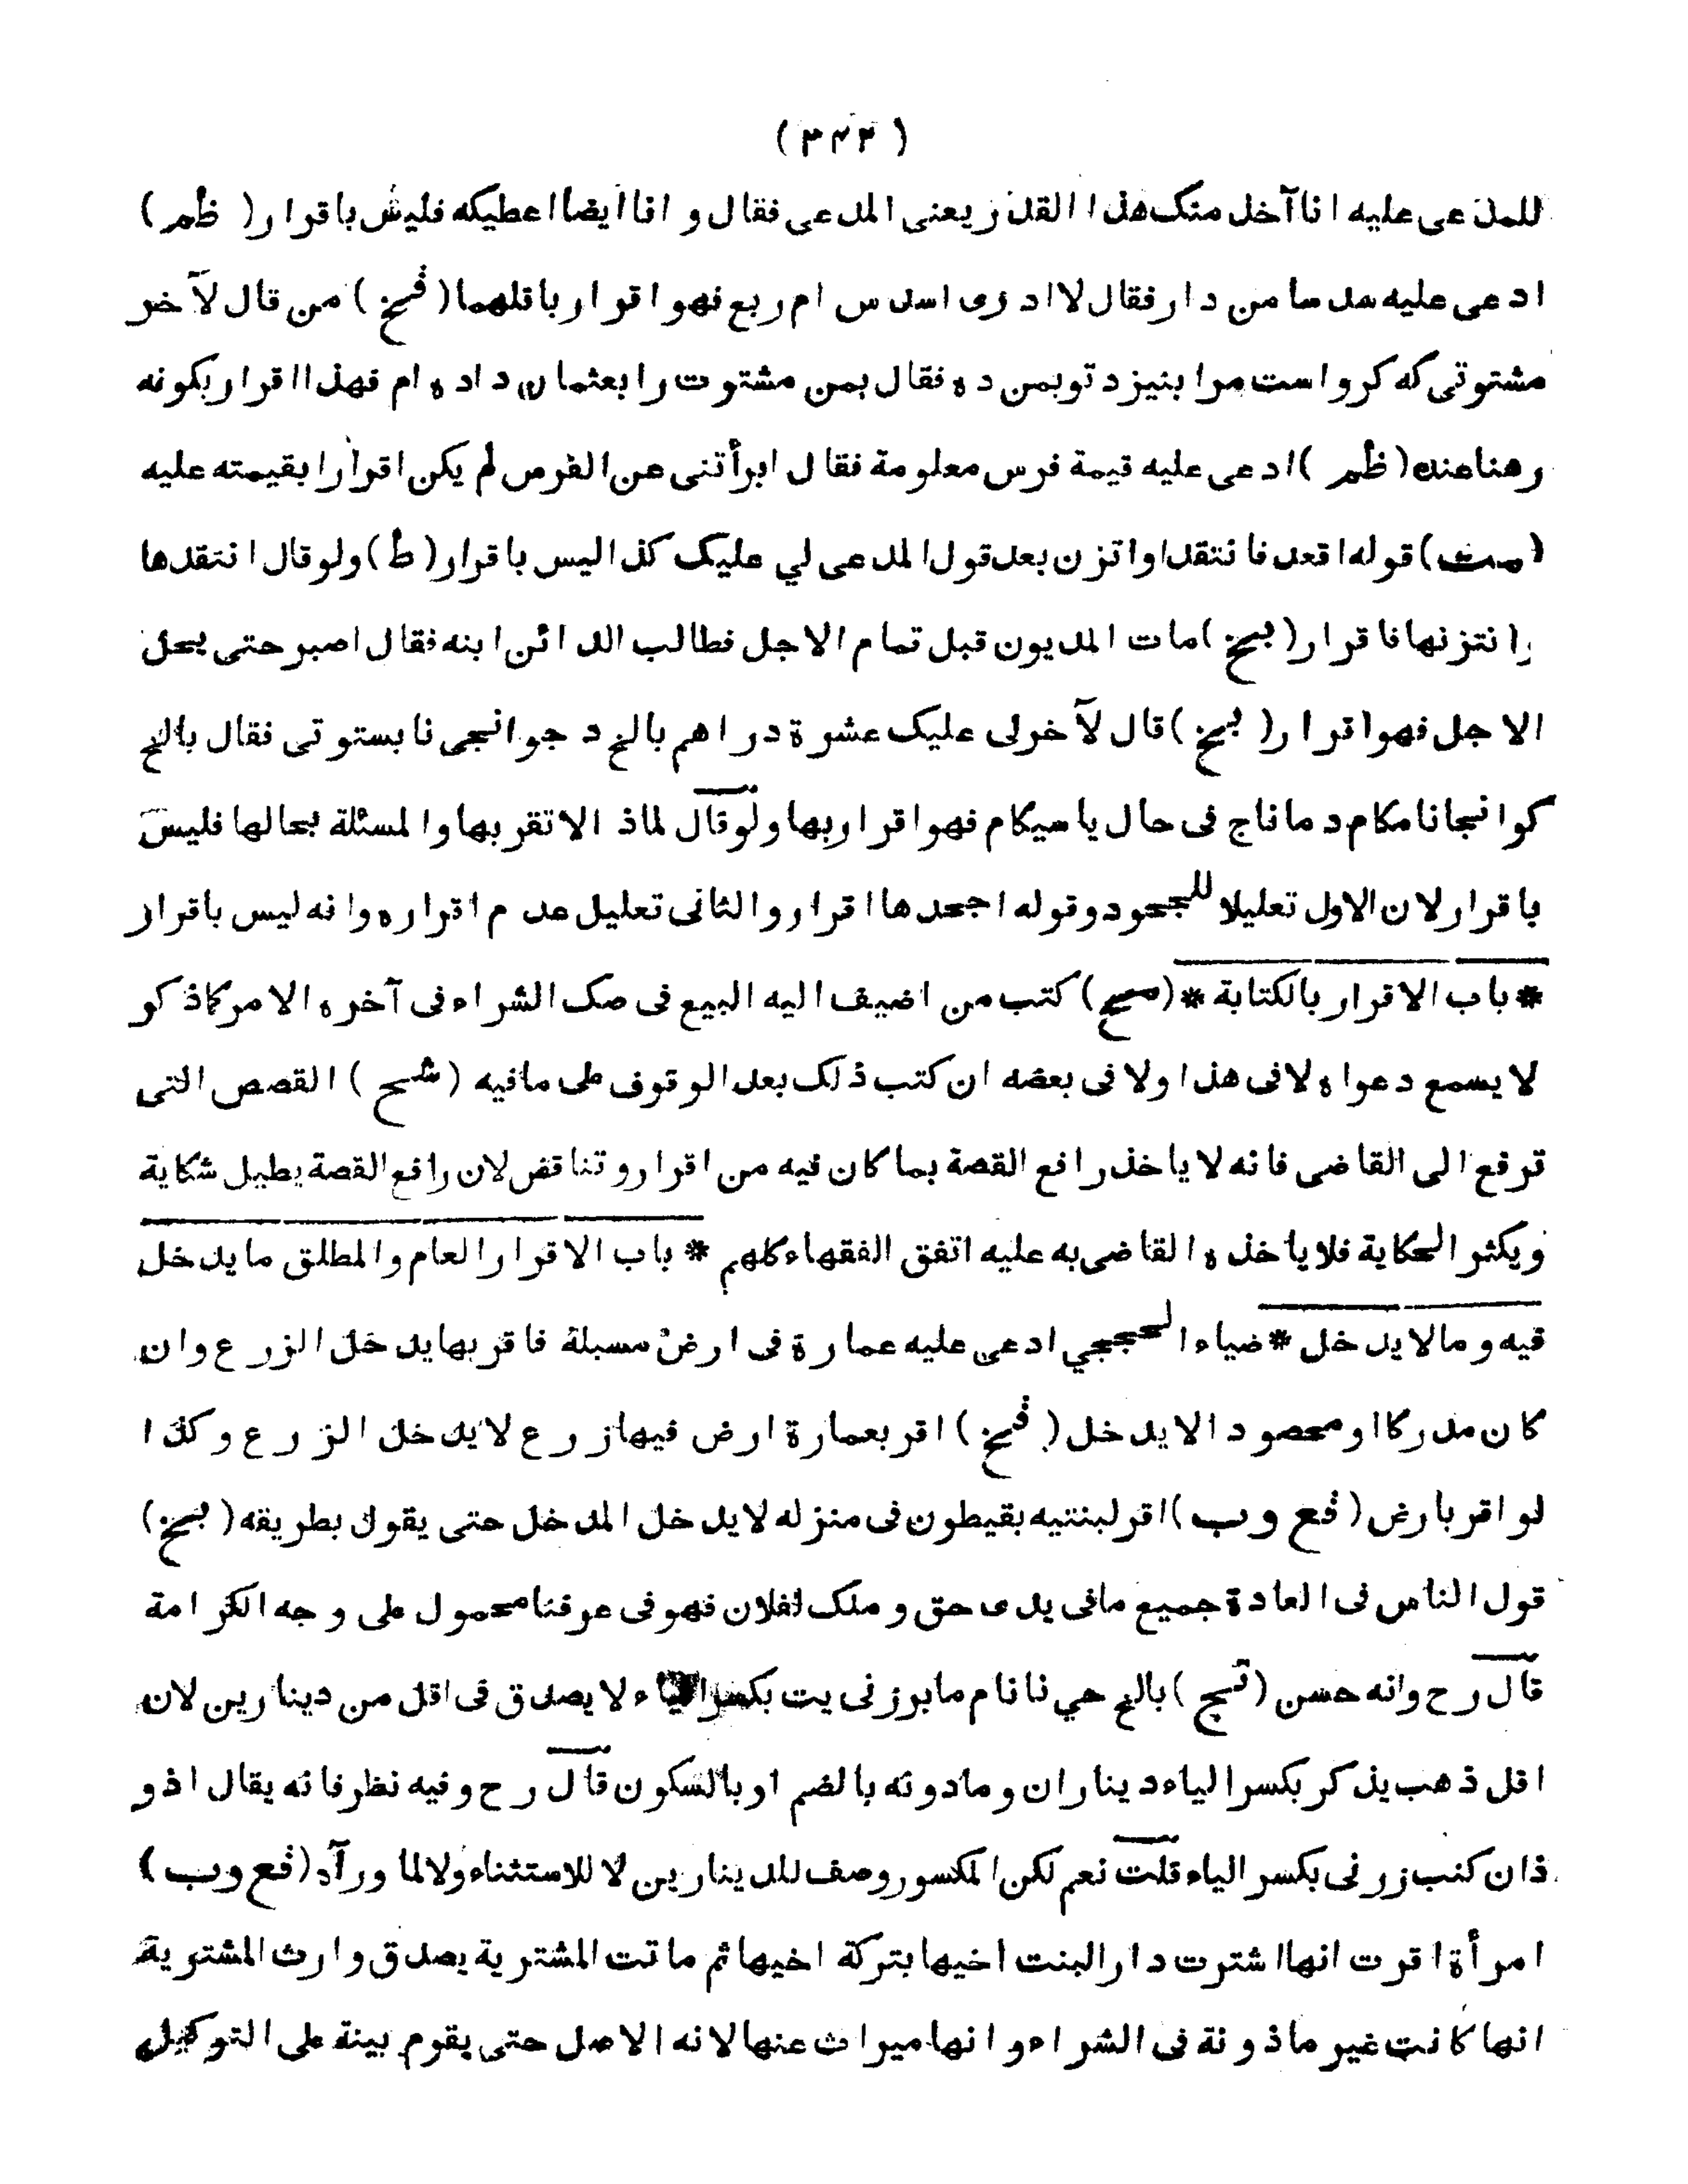 ( ٣٤٢ )
للمدعى عليه انا آخذ منك هذا القدر يعنى المدعى فقال و انا ايضا اعطيكه فليس باقرار ( ظم )
ادعى عليه سدسا من دار فقال لا ادرى اسدس ام ربع فهو اقرار باقلهما ( فخ ) من قال لآخر
مشتوتى كه كرو است مرا بنيزد تو بمن ده فقال بمن مشتوت را بعثمان داده ام فهذا اقرار بكونه
رهنا عنده ( ظم ) ادعى عليه قيمة فرس معلومة فقال ابرأتنى عن الفرس لم يكن اقرارا بقيمته عليه
( مت ) قوله اقعد فانتقد او اتزن بعد قول المدعى لي عليك كذا ليس باقرار ( ط ) ولو قال انتقدها
وانتزنها فاقرار ( بخ ) مات المديون قبل تمام الاجل فطالب الدائن ابنه فقال اصبر حتى يحل
الاجل فهو اقرار ( بخ ) قال لآخر لى عليك عشرة دراهم بالخ د جوانجى نا بستوتى فقال بالخ
كوانجا نا مكام د ماناج فى حال ياسيكام فهو اقرار بها ولو قال لماذا لا تقر بها والمسئلة بحالها فليس
باقرار لان الاول تعليلا للجحود وقوله اجحدها اقرار والثانى تعليل عدم اقراره وانه ليس باقرار
* باب الاقرار بالكتابة * ( مح ) كتب من اضيف اليه البيع فى صك الشراء فى آخره الامر كما ذكر
لا يسمع دعواه لا فى هذا ولا فى بعضه ان كتب ذلك بعد الوقوف على ما فيه ( شح ) القصص التى
ترفع الى القاضى فانه لا ياخذ رافع القصة بما كان فيه من اقرار وتناقض لان رافع القصة يطيل شكاية
ويكثر الحكاية فلا ياخذه القاضى به عليه اتفق الفقهاء كلهم * باب الاقرار العام والمطلق ما يدخل
فيه وما لا يدخل * ضياء الحججي ادعى عليه عمارة فى ارض مسبلة فاقر بها يدخل الزرع وان
كان مدركا او محصودا لا يدخل ( فخ ) اقر بعمارة ارض فيها زرع لا يدخل الزرع وكذا
لو اقر بارض ( فع وب ) اقر لبنتيه بقيطون فى منزله لا يدخل المدخل حتى يقول بطريقه ( بخ )
قول الناس فى العادة جميع ما فى يدى حق وملك لفلان فهو فى عرفنا محمول على وجه الكرامة
قال رح وانه حسن ( تج ) بالخ حي نا نام مابرزنى يت بكسر الياء لا يصدق فى اقل من دينارين لان
اقل ذهب يذكر بكسر الياء ديناران وما دونه بالضم او بالسكون قال رح وفيه نظر فانه يقال اذو
ذان كنب زرنى بكسر الياء قلت نعم لكن المكسور وصف للدينارين لا للاستثناء ولا لما ورآه ( فع وب )
امرأة اقرت انها اشترت دارا لبنت اخيها بتركة اخيها ثم ماتت المشترية يصدق وارث المشترية
انها كانت غير ماذونة فى الشراء وانها ميراث عنها لانه الاصل حتى يقوم بينة على التوكيل